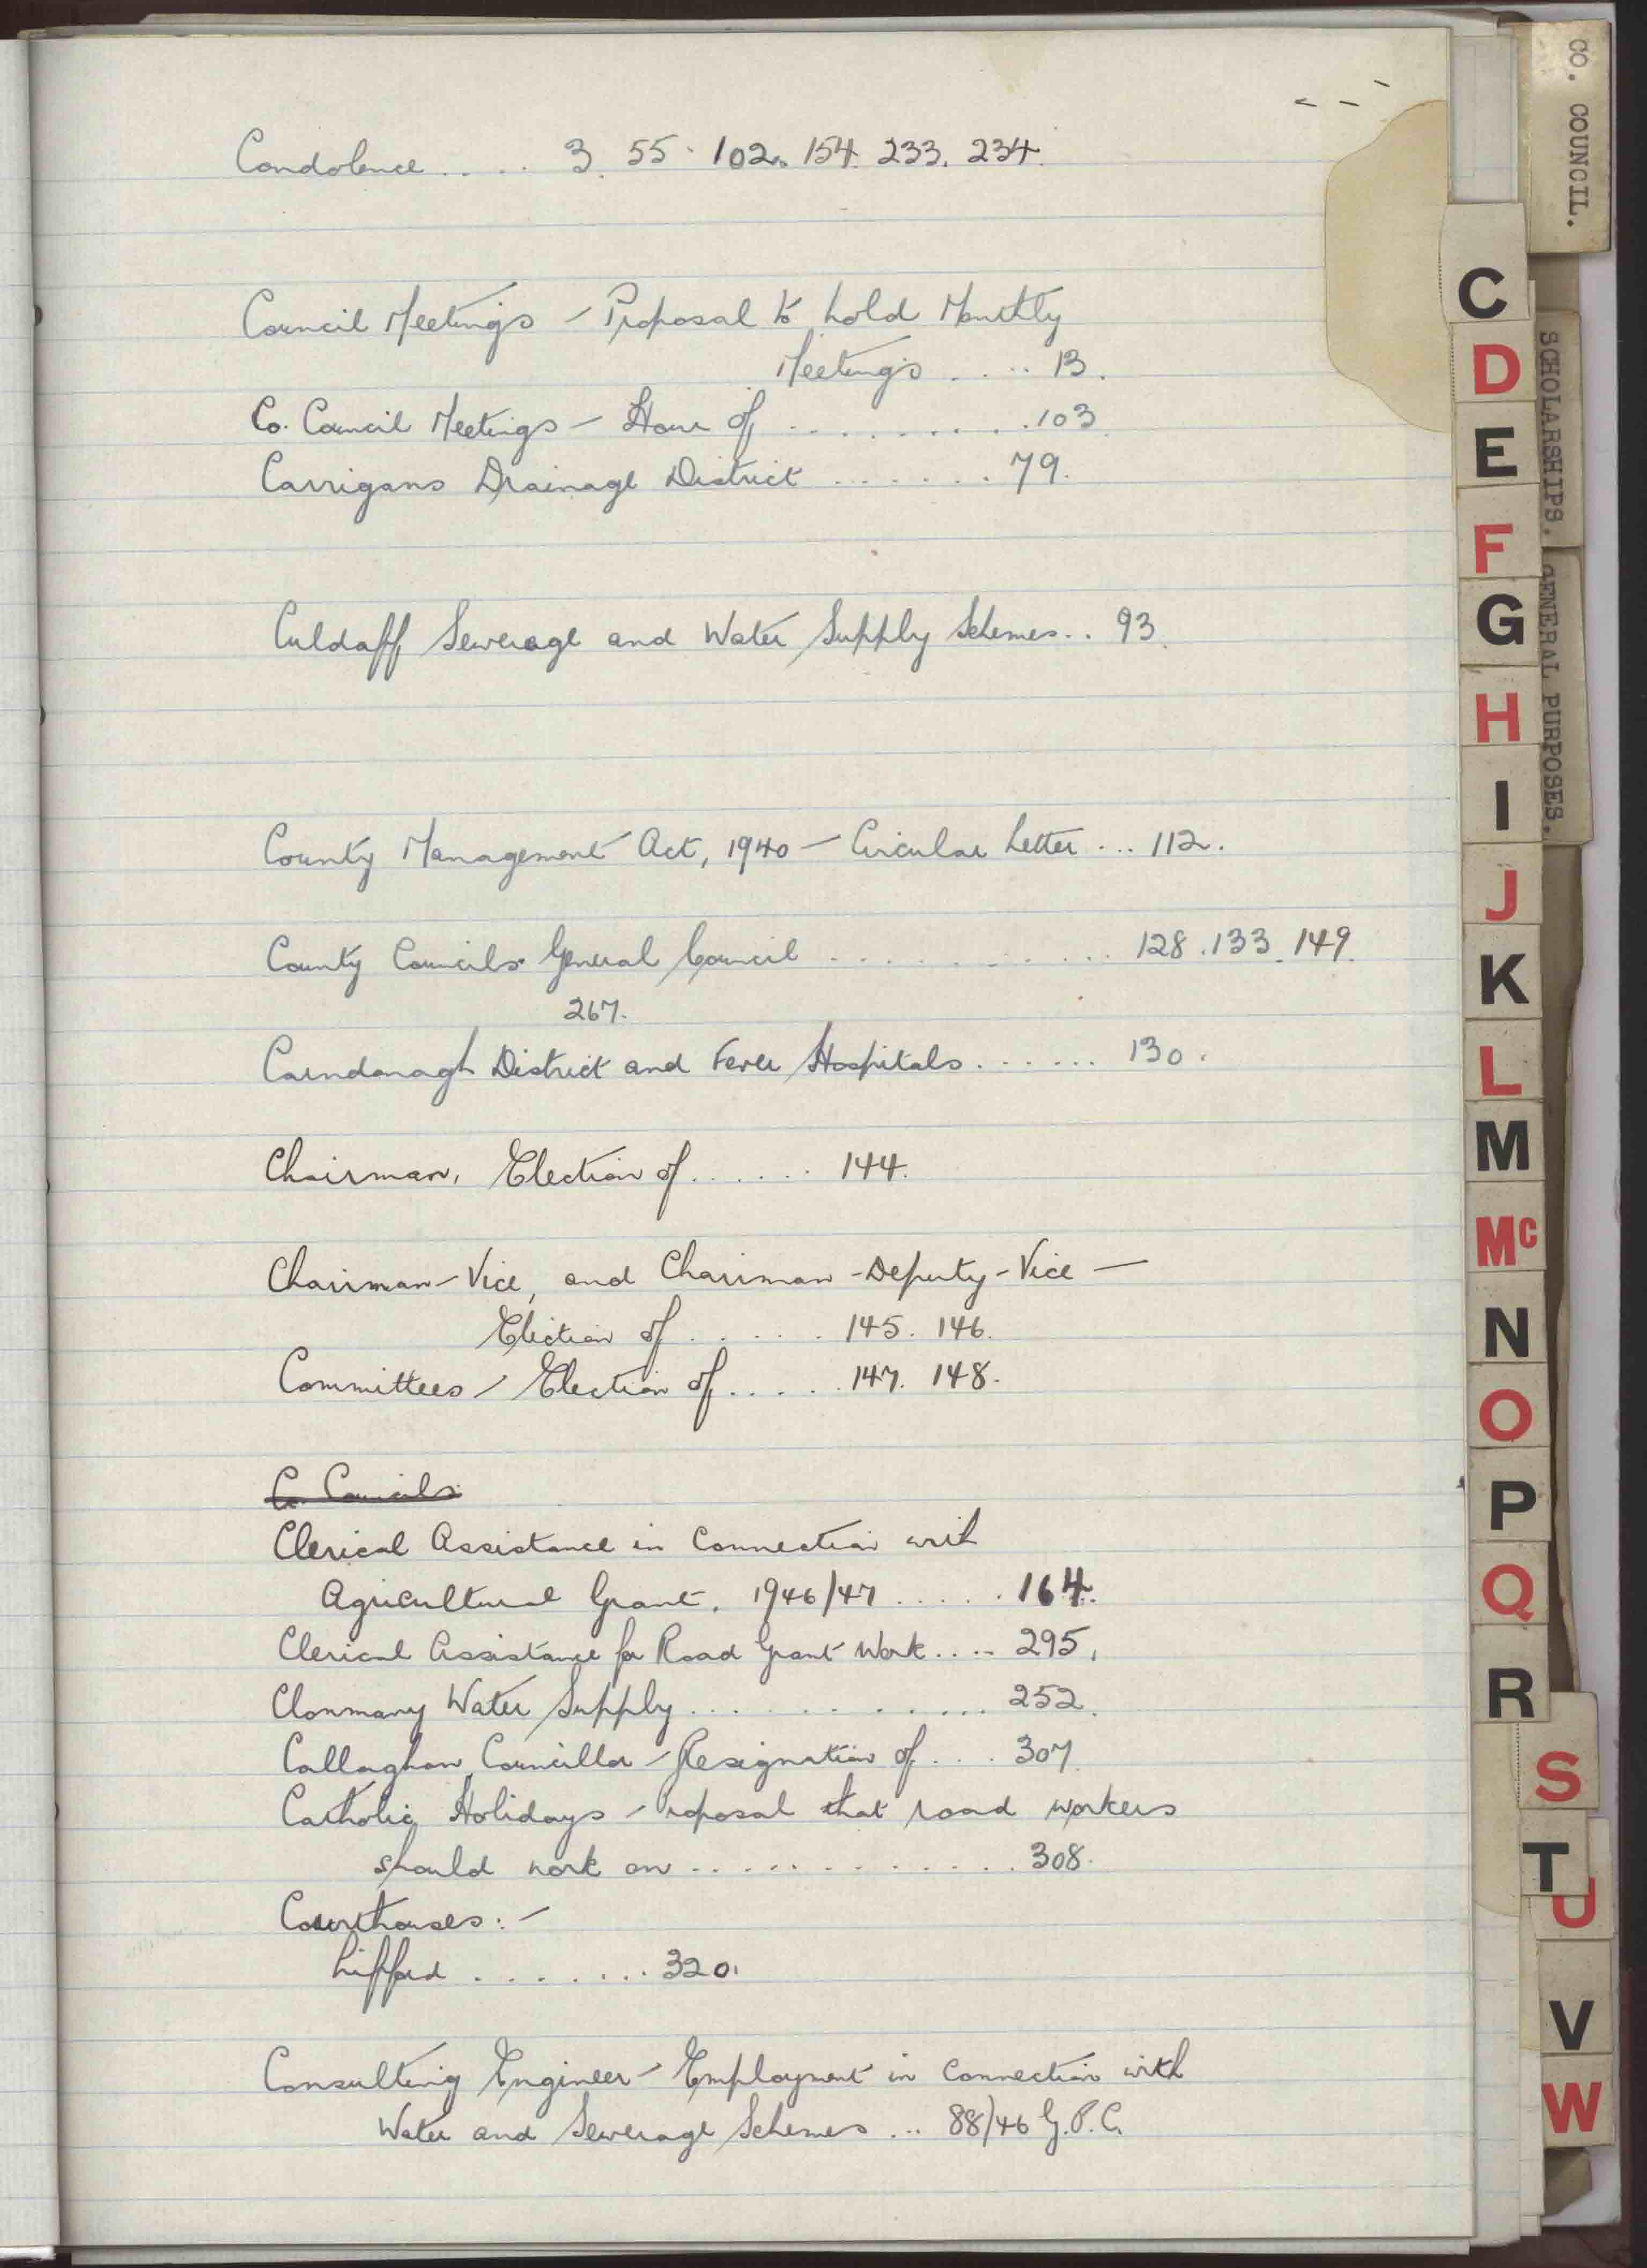 Condolence ..... 3. 55. 102. 154. 233. 234.
Council Meetings - Proposal to hold Monthly
Meetings ..... 13.
Co. Council Meetings - Hour of ........... 103
Carrigans Drainage District ....... 79.
Culdaff Sewerage and Water Supply Schemes.. 93.
County Management Act, 1940 - Circular Letter ... 112.
County Councils General Council ............ 128. 133. 149.
267.
Carndonagh District and Fever Hospitals ....... 130.
Chairman, Election of ....... 144.
Chairman-Vice, and Chairman-Deputy-Vice -
Election of ...... 145. 146.
Committees - Election of ...... 147. 148.
Co. Councils
Clerical Assistance in connection with
Agricultural Grant. 1946/47 ...... 164.
Clerical Assistance for Road Grant Work .... 295.
Clonmany Water Supply .............. 252.
Callaghan, Councillor - Resignation of .... 307.
Catholic Holidays - Proposal that road workers
should work on .............. 308.
Courthouses:-
Lifford ........ 320.
Consulting Engineer - Employment in connection with
Water and Sewerage Schemes ... 88/46 G.P.C.
CO. COUNCIL.
SCHOLARSHIPS.
GENERAL PURPOSES.
C
D
E
F
G
H
I
J
K
L
M
Mc
N
O
P
Q
R
S
T
U
V
W